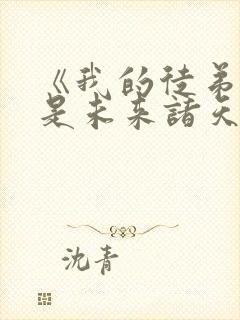 《我的徒弟
是未来諸天
沈青